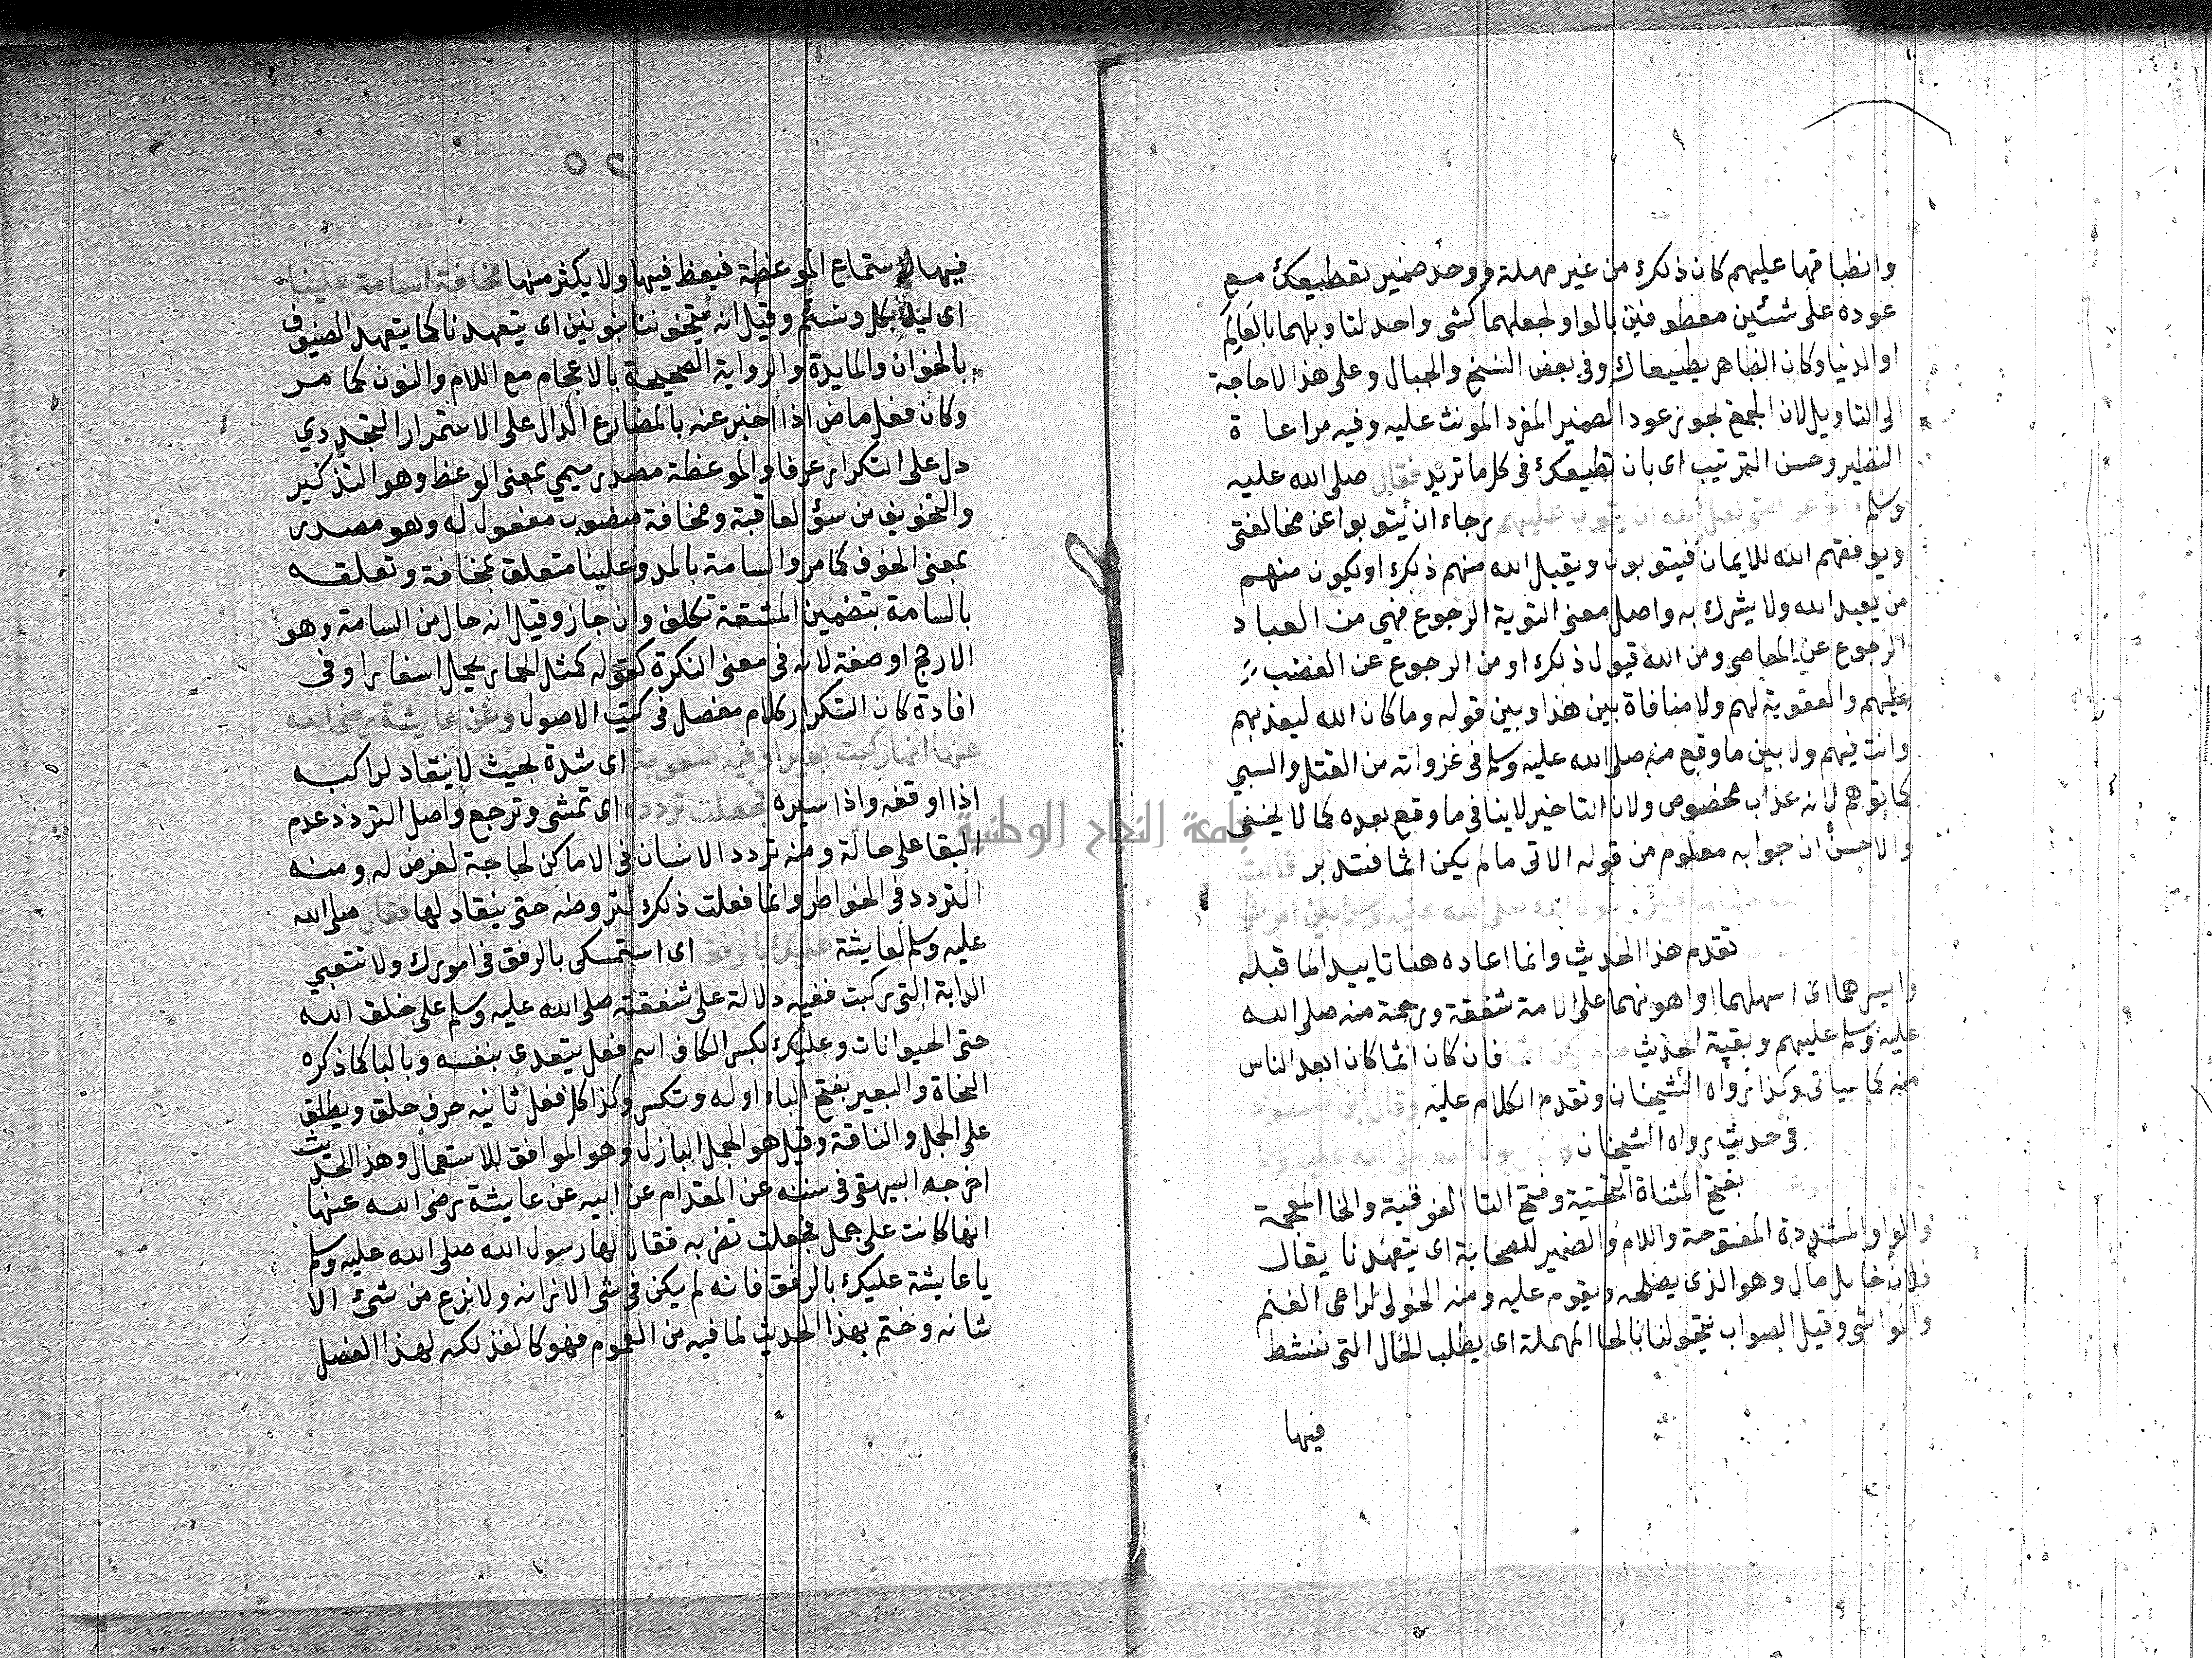 وانطباقها عليهم كان ذلك من غير مهلة ووحد ضمير تعطيعك مع
عوده على شئين معطوفين بالواو لجعلهما كشى واحد لتاويلهما بالعالم
او الدنيا وكان الظاهر يطيعاك وفى بعض النسخ والجبال وعلى هذا لا حاجة
الى التاويل لان الجمع يجوز عود الضمير المفرد المونث عليه وفيه مراعا ة
النظير وحسن الترتيب اى بان تطيعك فى كل ما تريد فقال صلى الله عليه
وسلم اوخر عن امتى لعل الله ان يتوب عليهم برجاء ان يتوبوا عن مخالفتى
ويوفقهم الله للايمان فيتوبون ويقبل الله منهم ذلك او يكون منهم
من يعبد الله ولا يشرك به واصل معنى التوبة الرجوع فهي من العباد
الرجوع عن المعاصى ومن الله قبول ذلك او من الرجوع عن الغضب
عليهم والعقوبة لهم ولا منافاة بين هذا وبين قوله وما كان الله ليعذبهم
وانت فيهم ولا بين ما وقع منه صلى الله عليه وسلم فى غزواته من القتل والسبي
كما توهم لانه عذاب مخصوص ولان التاخير لا ينافى ما وقع بعده كما لا يخفى
والاحسن ان جوابه معلوم من قوله الاتى ما لم يكن اثما فتدبر قالت
رسول الله صلى الله عليه وسلم بين امرين
تقدم هذا الحديث وانما اعاده هنا تاييدا لما قبله
وايسرهما اى اسهلهما او اهونهما على الامة شفقة ورحمة منه صلى الله
عليه وسلم عليهم وبقية الحديث فان كان اثما كان ابعد الناس
منه كما سياتى وكذا رواه الشيخان وتقدم الكلام عليه وقال ابن مسعود
فى حديث رواه الشيخان
بفتح المثناة التحتية وفتح التا الفوقية والخا المعجمة
والواو المشددة المفتوحة واللام والضمير للصحابة اى يتعهدنا يقال
فلان خايل مال وهو الذى يصلحه ويقوم عليه ومنه الخولى لراعى الغنم
والمواشى وقيل الصواب يتحولنا بالحا المهملة اى يطلب الحال التى ننشط
فيها
فيها لاستماع الموعظة فيعظ فيها ولا يكثر منها مخافة السامة علينا
اى ليلا نكل ونسئم وقيل انه يتخوننا بنونين اى يتعهدنا كما يتعهد الضيوف
بالخوان والمايدة والرواية الصحيحة بالاعجام مع اللام والنون كما مر
وكان فعل ماض اذا اخبر عنه بالمضارع الدال على الاستمرار التجددي
دل على التكرار عرفا والموعظة مصدر ميمي بمعنى الوعظ وهو التذكير
والتخويف من سؤ العاقبة ومخافة منصوب مفعول له وهو مصدر
بمعنى الخوف كما مر والسامة بالمد وعلينا متعلق بمخافة وتعلقه
بالسامة بتضمين المشقة تكلف وان جاز وقيل انه حال من السامة وهو
الارجح او صفة لانه فى معنى النكرة كقوله كمثل الحمار يحمل اسفارا وفى
افادة كان التكرار كلام مفصل فى كتب الاصول وعن عايشة رضى الله
عنها انها ركبت بعيرا وفيه صعوبة اى شدة بحيث لا ينقاد لراكبه
اذا اوقفه واذا سيره فجعلت تردده اى تمشى وترجع واصل التردد عدم
البقا على حالة ومنه تردد الانسان فى الاماكن لحاجة لغرض له ومنه
التردد فى الخواطر وانما فعلت ذلك لتروضه حتى ينقاد لها فقال صلى الله
عليه وسلم لعايشة عليك بالرفق اى استمسكى بالرفق فى امورك ولا تتعبي
الدابة التى ركبت ففيه دلالة على شفقته صلى الله عليه وسلم على خلق الله
حتى الحيوانات وعليك بكسر الكاف اسم فعل يتعدى بنفسه وبالبا كما ذكره
النحاة والبعير بفتح الباء اوله وتكسر وكذا كل فعل ثانيه حرف حلق ويطلق
على الجمل والناقة وقيل هو الجمل البازل وهو الموافق للاستعمال وهذا الحديث
اخرجه البيهقى فى سننه عن المقدام عن ابيه عن عايشة رضى الله عنها
انها كانت على جمل فجعلت تضربه فقال لها رسول الله صلى الله عليه وسلم
يا عايشة عليك بالرفق فانه لم يكن فى شى الا زانه ولا نزع من شئ الا
شانه وختم بهذا الحديث لما فيه من العموم فهو كالفذلكه لهذا الفصل
جامعة النجاح الوطنية